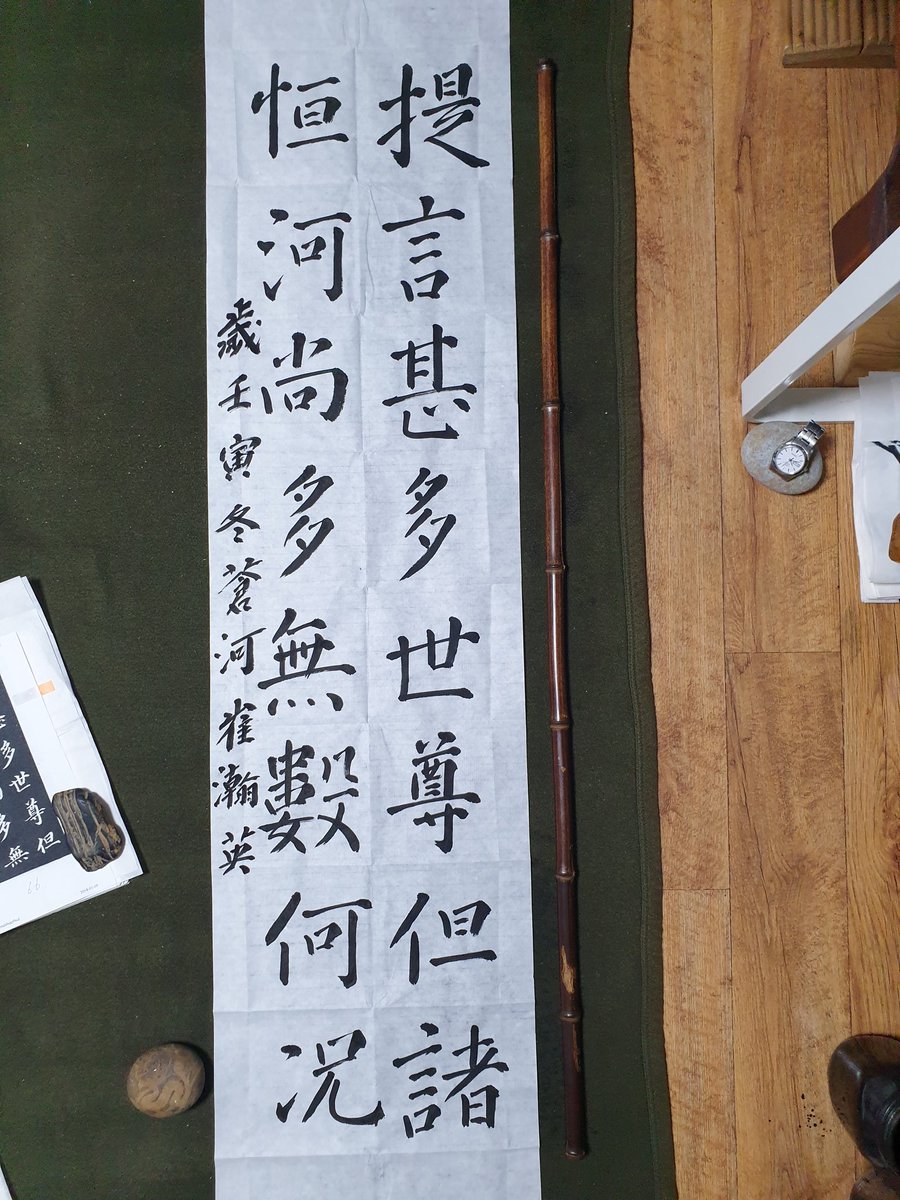 提言甚多世尊但諸
恒河尚多無數何況
歲壬寅冬蒼河崔瀚英
多世尊但
多無